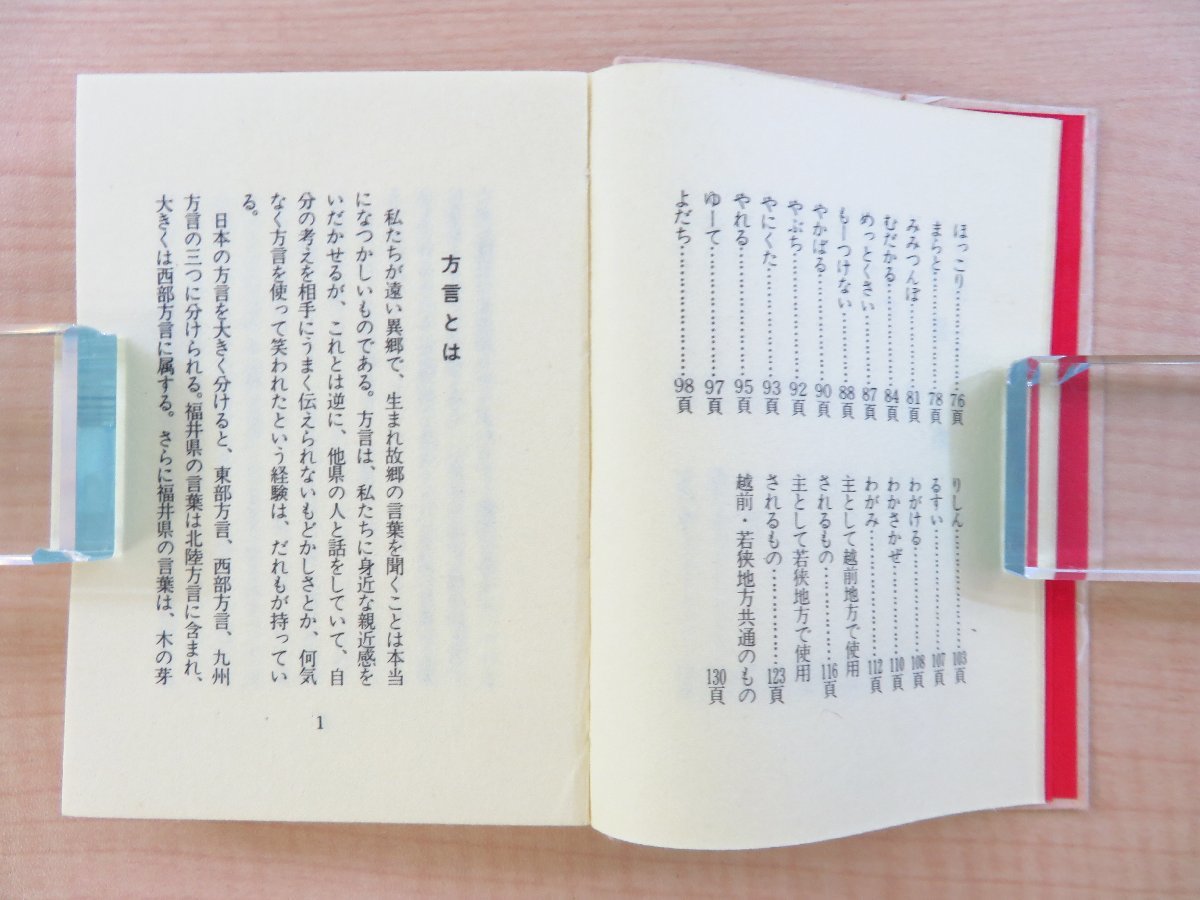 ほっこり……………………76頁
まらと……………………78頁
みみつんぼ……………………81頁
むだかる……………………84頁
めっとくさい……………………87頁
もーつけない……………………88頁
やかばる……………………90頁
やぶち……………………92頁
やにくた……………………93頁
やれる……………………95頁
ゆーて……………………97頁
よだち……………………98頁
りしん……………………103頁
るすい……………………107頁
わがける……………………108頁
わかさかぜ……………………110頁
わがみ……………………112頁
主として越前地方で使用
されるもの……………………116頁
主として若狭地方で使用
されるもの……………………123頁
越前・若狭地方共通のもの
130頁
方言とは
私たちが遠い異郷で、生まれ故郷の言葉を聞くことは本当
になつかしいものである。方言は、私たちに身近な親近感を
いだかせるが、これとは逆に、他県の人と話をしていて、自
分の考えを相手にうまく伝えられないもどかしさとか、何気
なく方言を使って笑われたという経験は、だれもが持ってい
る。
日本の方言を大きく分けると、東部方言、西部方言、九州
方言の三つに分けられる。福井県の言葉は北陸方言に含まれ、
大きくは西部方言に属する。さらに福井県の言葉は、木の芽
1